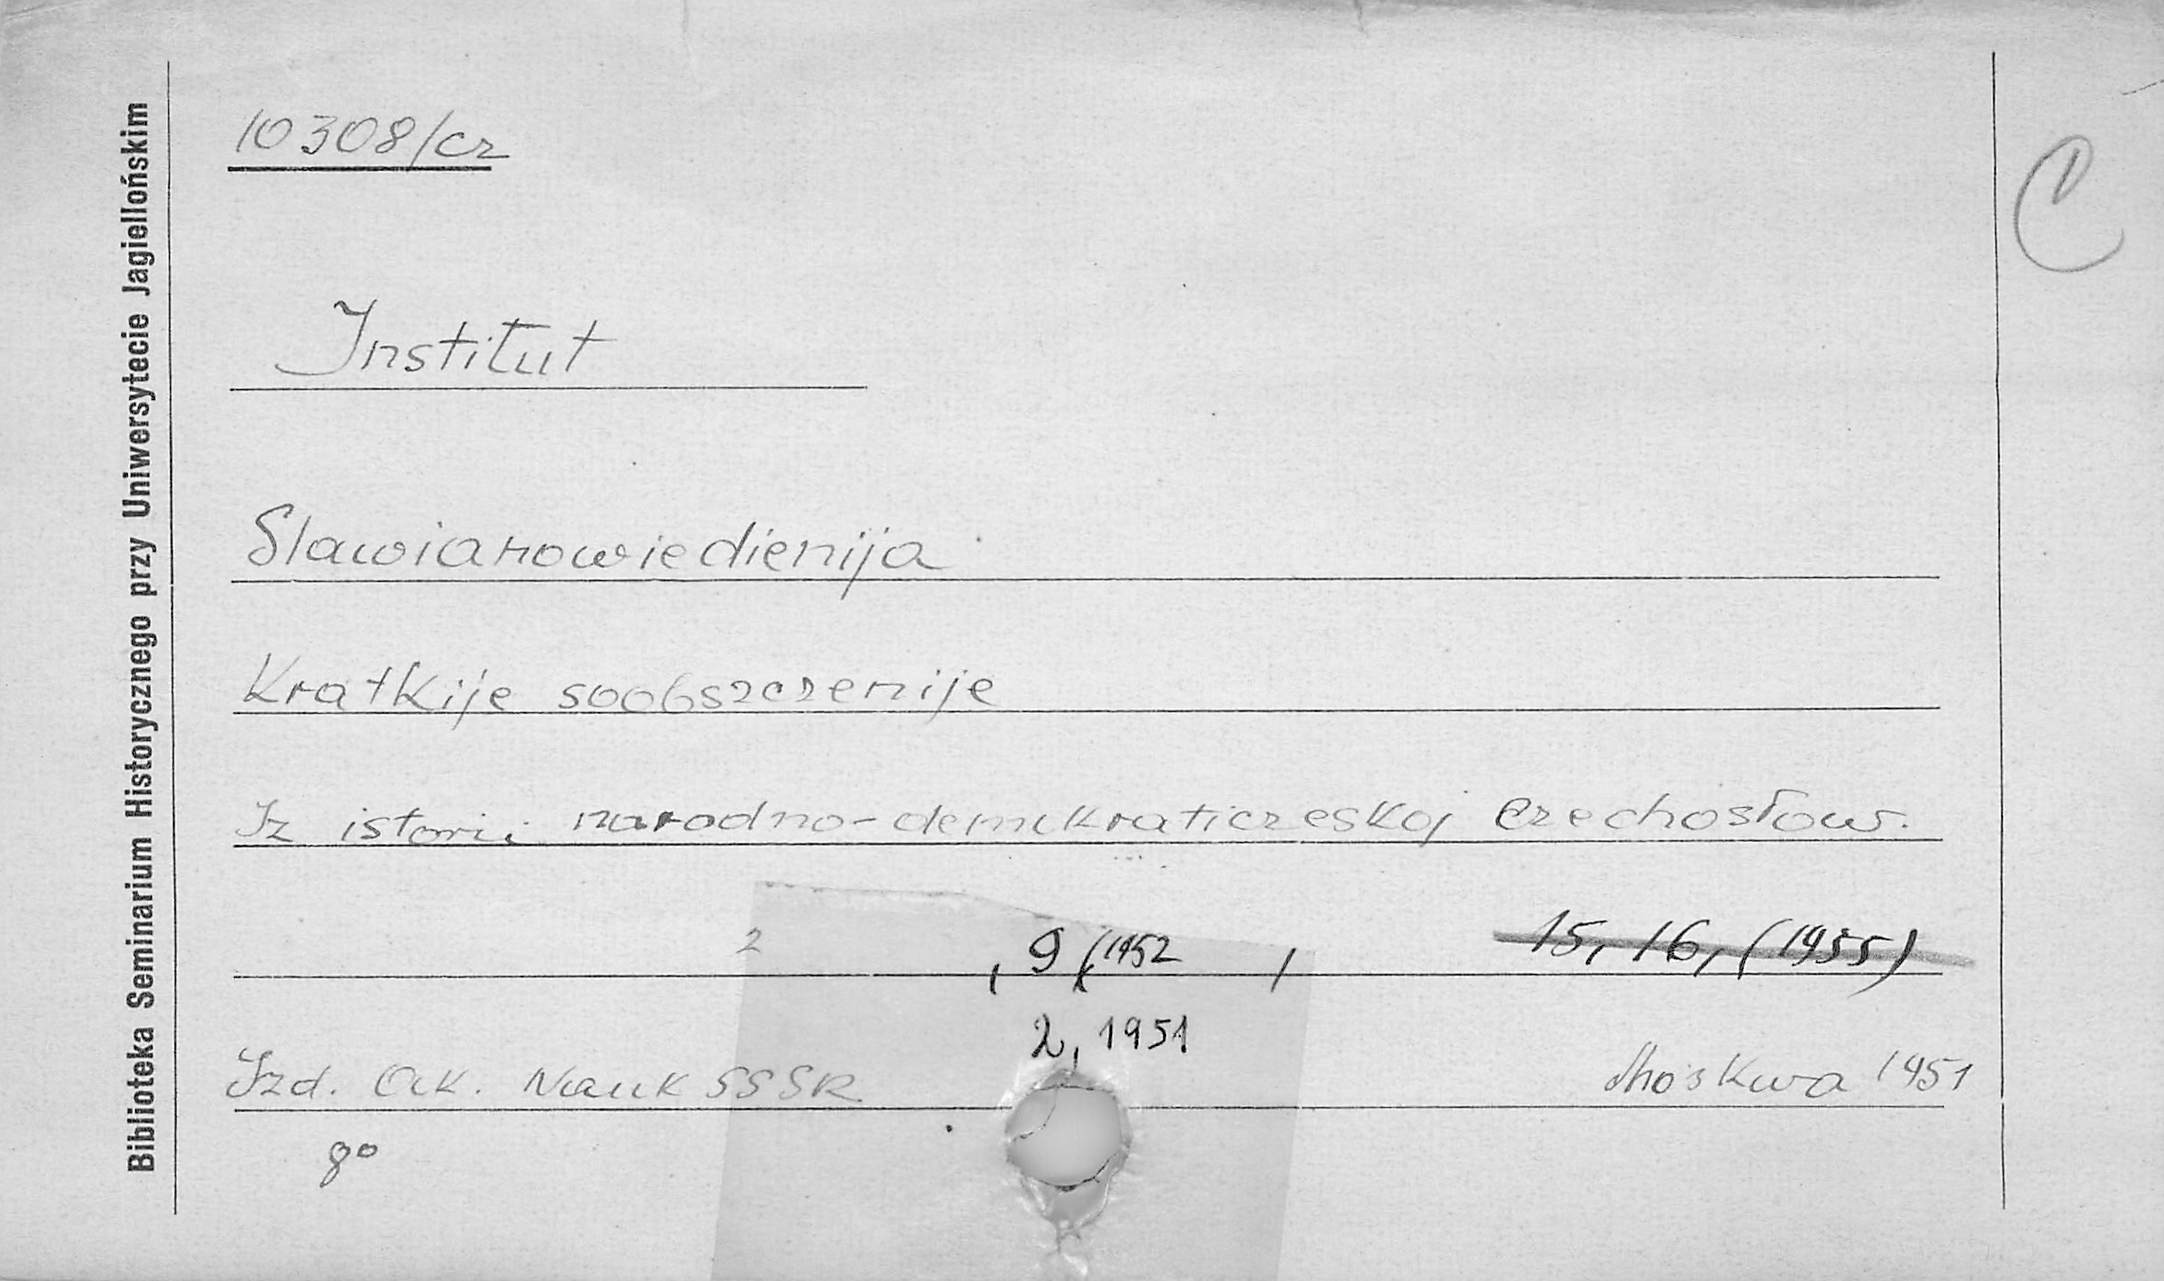 Biblioteka Seminarium Historycznego przy Uniwersytecie Jagiellońskim
10308/cz
C
Institut
Slawianowiedienija
Kratkije soobszczenije
Iz istorii narodno-demokraticzeskoj Czechosłow.
2 , 9 (1952 , 15, 16, (1955)
2, 1951
Izd. Ak. Nauk SSSR Moskwa 1951
8°